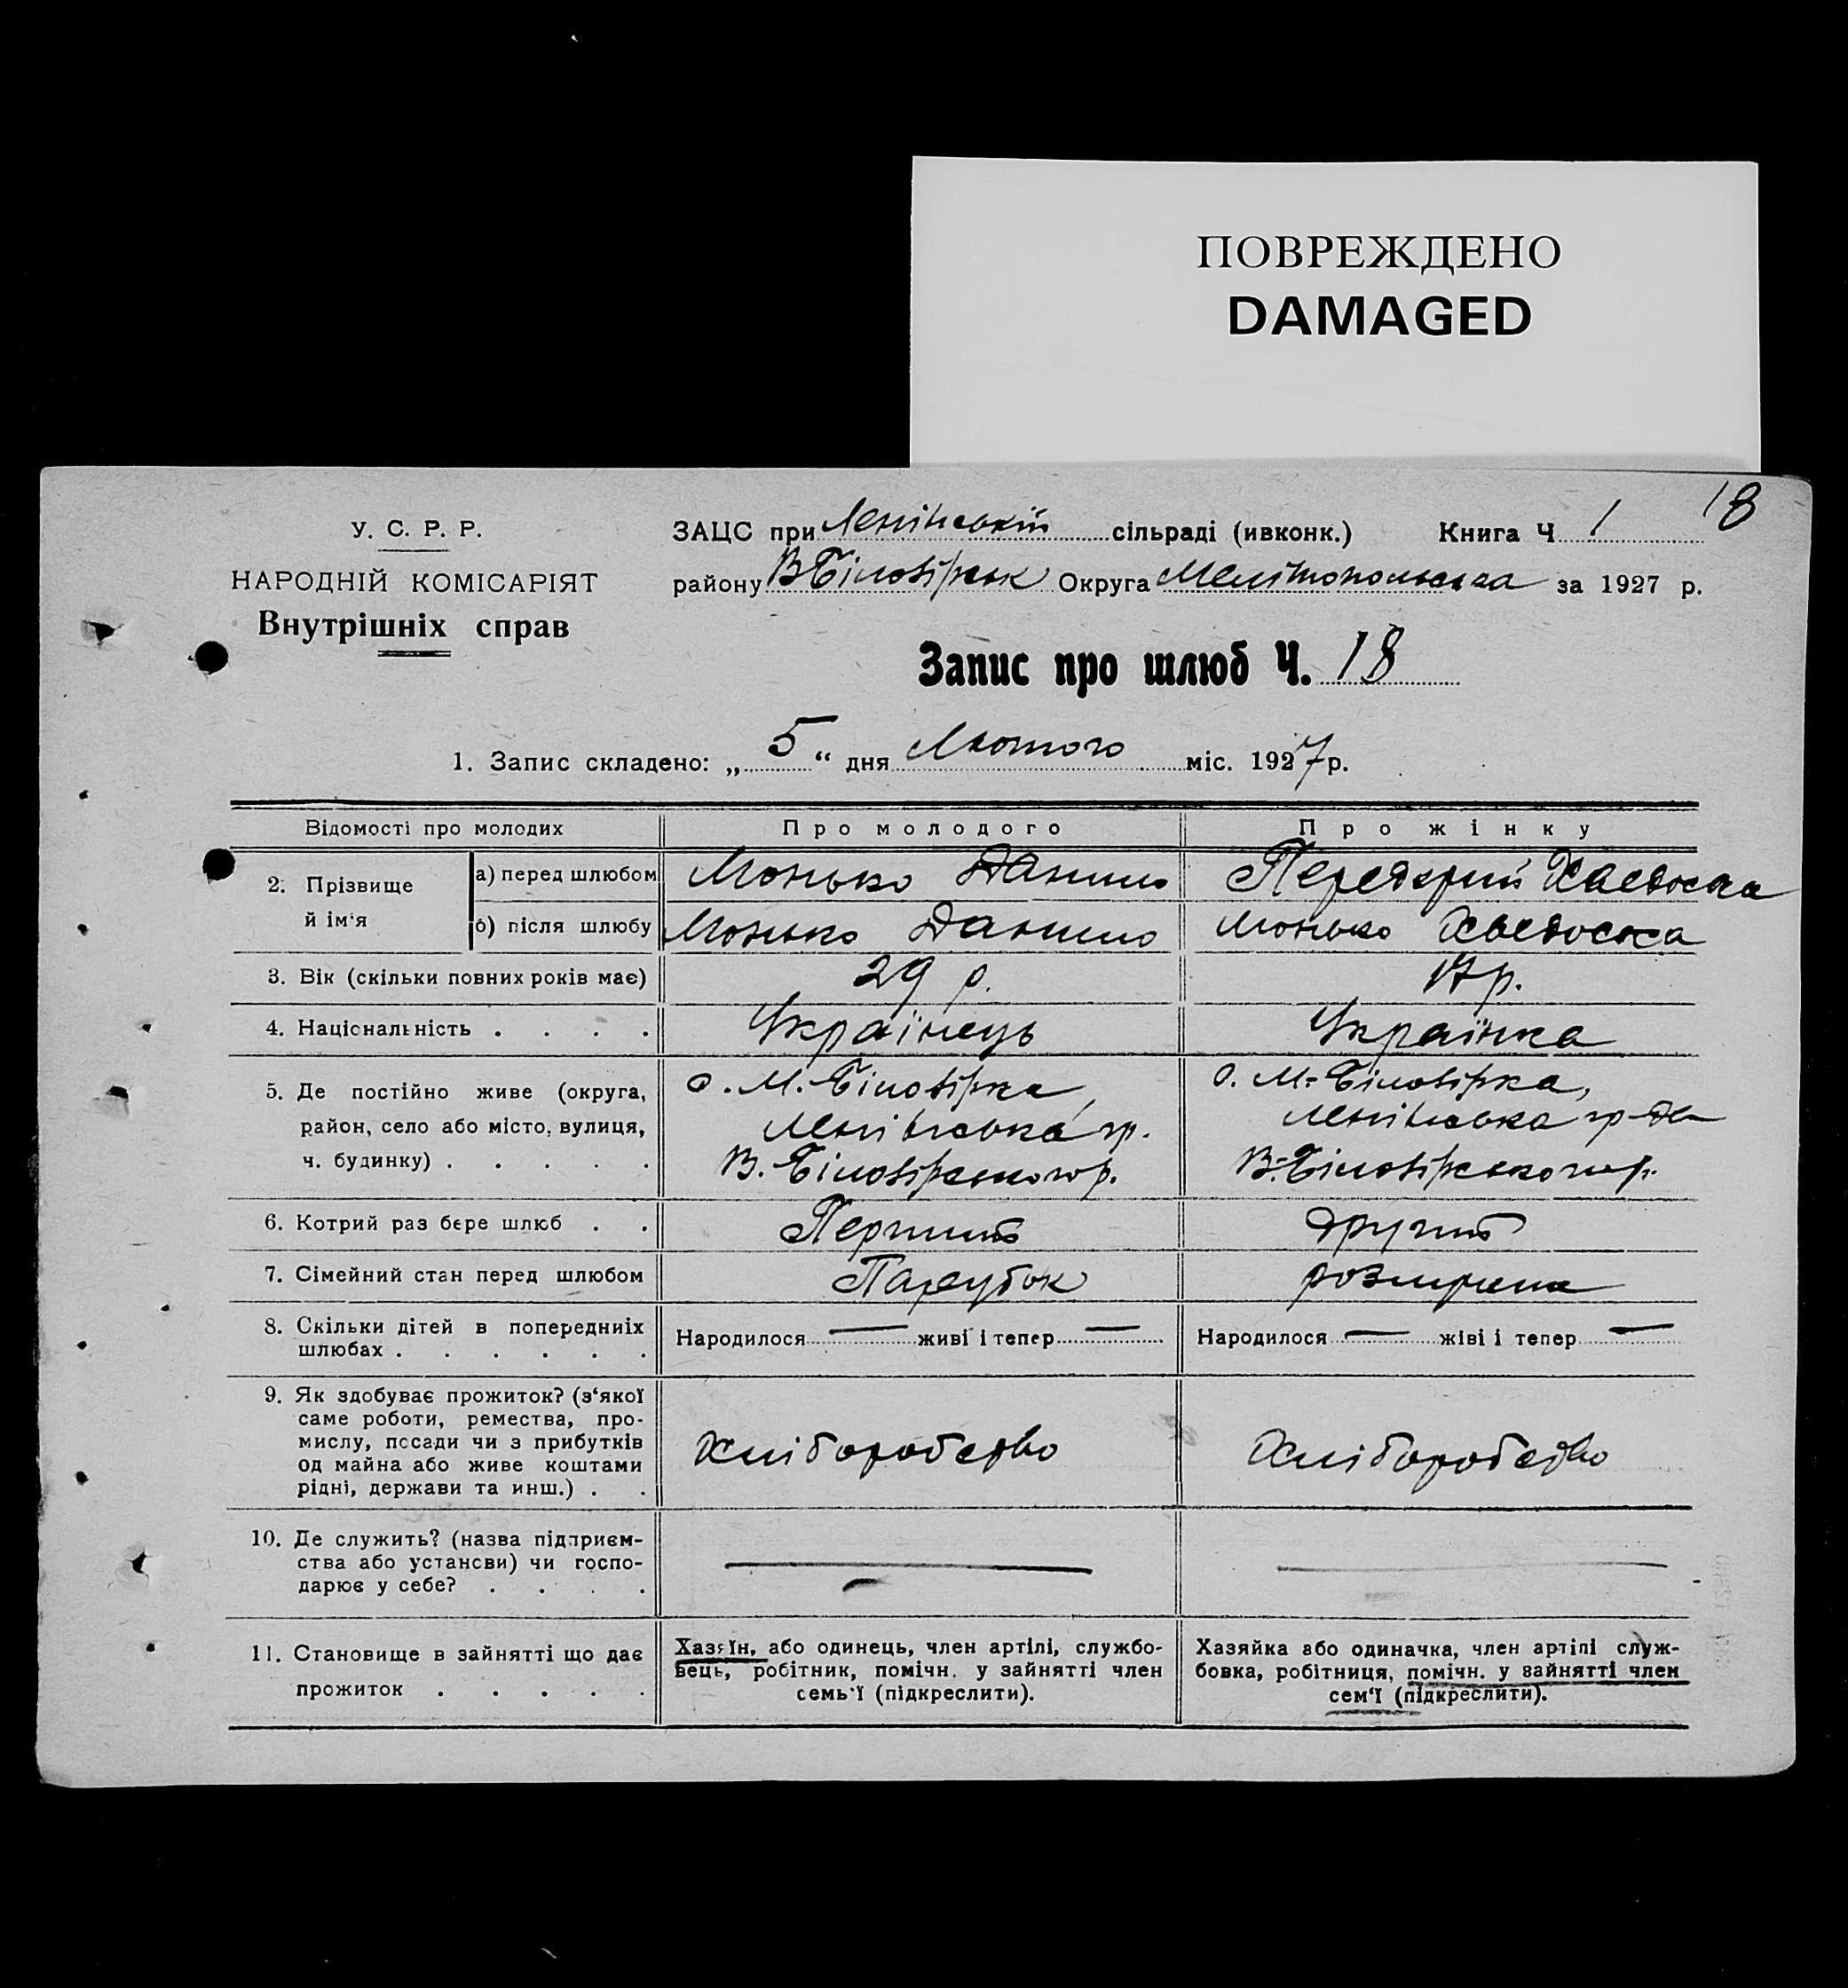 ПОВРЕЖДЕНО
DAMAGED
18
У. С. Р. Р.
НАРОДНІЙ КОМІСАРІЯТ
Внутрішніх справ
ЗАЦС при Ленінській сільраді (ивконк.) Книга Ч 1
району В Білозірськ Округа Мелітопольська за 1927 р.
Запис про шлюб Ч. 18
1. Запис складено: „ 5 “ дня Лютого міс. 1927 р.
Відомості про молодих Про молодого Про жінку
2. Прізвище й ім‘я
а) перед шлюбом Монько Данило Передерий Хведоска
б) після шлюбу Монько Данило Монько Хведоска
3. Вік (скільки повних років має) 29 р. 17 р.
4. Національність . . . . Українець Українка
5. Де постійно живе (округа, район, село або місто, вулиця, ч. будинку) . . . . .
с. М. Білозірка,
Ленінська гр.
В. Білозірського р.
с. М-Білозірка,
Ленінська гр-
В-Білозірського р.
6. Котрий раз бере шлюб . . Перший Другий
7. Сімейний стан перед шлюбом Парубок
8. Скільки дітей в попередниіх шлюбах . . . . . . Народилося — живі і тепер — Народилося — жіві і тепер —
9. Як здобуває прожиток? (з‘якої
саме роботи, ремества, про-
мислу, посади чи з прибутків
од майна або живе коштами
рідні, держави та инш.) . .
Хліборобство Хліборобство
10. Де служить? (назва підприєм-
ства або установи) чи госпо-
дарює у себе? . . . .
11. Становище в зайнятті що дає
прожиток . . . . .
Хазяїн, або одинець, член артілі, службо-
вець, робітник, помічн. у зайнятті член
семь‘ї (підкреслити).
Хазяйка або одиначка, член артілі служ-
бовка, робітниця, помічн. у зайнятті член
сем‘ї (підкреслити).